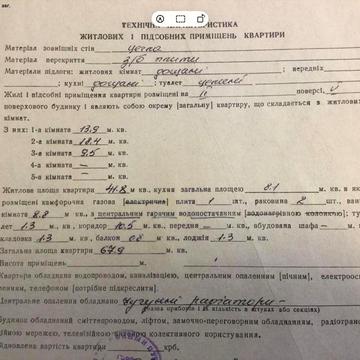 ТЕХНІЧНА ХАРАКТЕРИСТИКА
ЖИТЛОВИХ І ПІДСОБНИХ ПРИМІЩЕНЬ КВАРТИРИ
Матеріал зовнішніх стін цегла
Матеріал перекриття з/б плити
Матеріали підлоги: житлових кімнат дощані ; передніх
; кухні дощані ; туалет цементні
Жилі і підсобні приміщення квартири розміщені на поверсі,
поверхового будинку і являють собою окрему [загальну] квартиру, що складається в житлових
кімнат.
З них: 1-а кімната 13,9 м. кв.
2-а кімната 18,4 м. кв.
3-я кімната 9,5 м. кв.
4-а кімната — м. кв.
5-а кімната — м. кв.
Житлова площа квартири 41.8 м кв., кухня загальна площею 8.1 м. кв. в як
розміщені камфорочна газова [електрична] плита 1 шт., раковина 2 шт., ван
кімната м. кв., з центральним гарячим водопостачанням [водонагрівною колонкою]; ту
лет 1.3 м. кв., коридор 10.5 м. кв., передня — м. кв., вбудована шафа — м.
кладовка 1.3 м. кв., балкон м. кв., лоджія 1.3 м. кв.
Загальна площа квартири 67.9 м. кв.
Висота приміщень м.
Квартира обладнана водопроводом, каналізацією, центральним опаленням [пічним], електроос
ленням, телефоном [потрібне підкреслити].
Центральне опалення обладнано чугунні радіатори —
[назва приборів і їх кількість в штуках або секціях]
Будинок обладнаний сміттєпроводом, ліфтом, замочно-переговорним обладнанням, радіотранс
ційною мережею, телевізійною антеною колективного користування.
Відновлена вартість квартири крб.